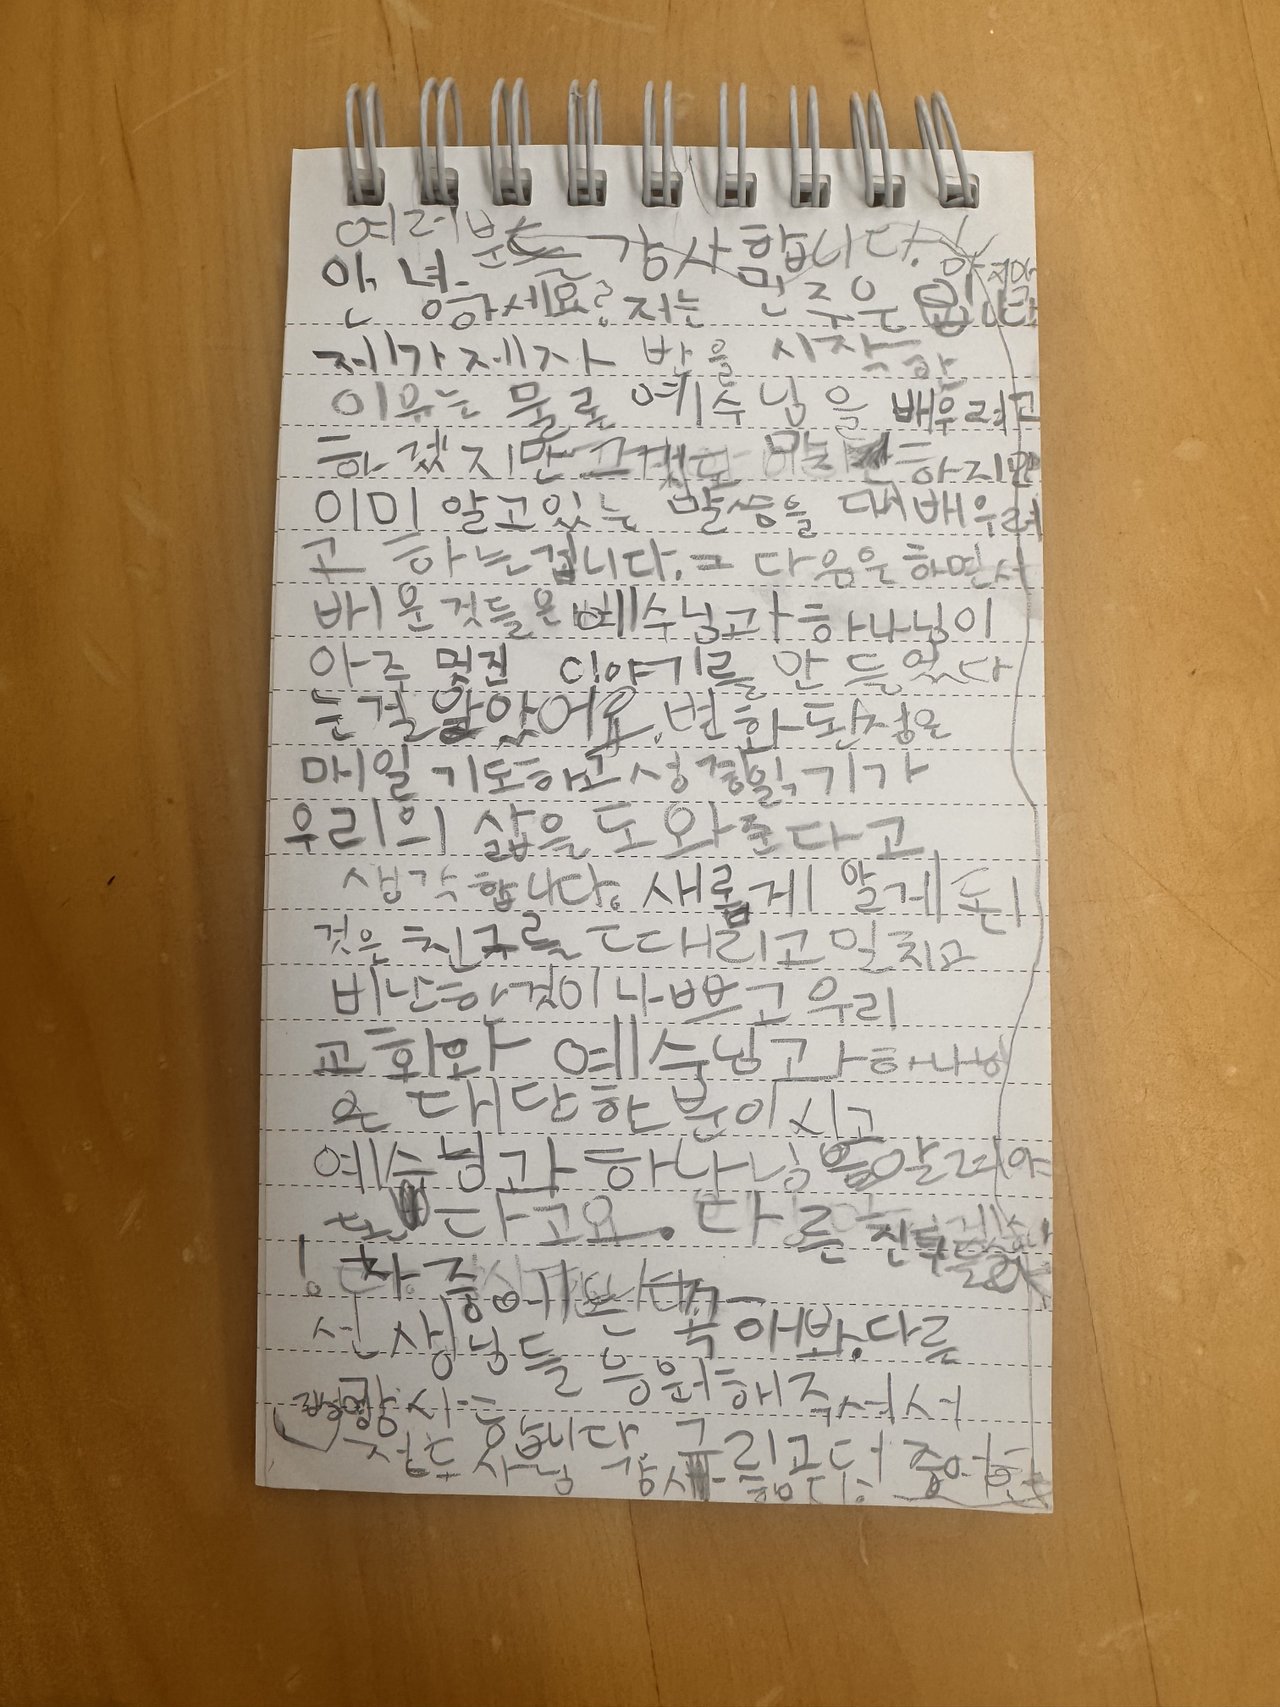 여러분들 감사합니다.
안녕하세요? 저는 민주운 입니다
제가 제자 반을 시작한
이유는 물론 예수님을 배우려고
하겠지만 하지만
이미 알고있는 말씀을 더 배우려
고 하는겁니다. 그 다음은 하면서
배운것들은 예수님과 하나님이
아주 멋진 이야기를 만들었다
는걸 알았어요. 변화된점은
매일 기도하고 성경읽기가
우리의 삶을 도와준다고
생각합니다. 새롭게 알게 된
것은 친구를 때리고 일르고
비난한것이 나쁘고 우리
교회와 예수님과 하나님
은 대단한 분이시고
예수님과 하나님을 알려야
된다고요. 다른 친구들
선생님들 응원해주셔서
전도사님 감사 그리고 더